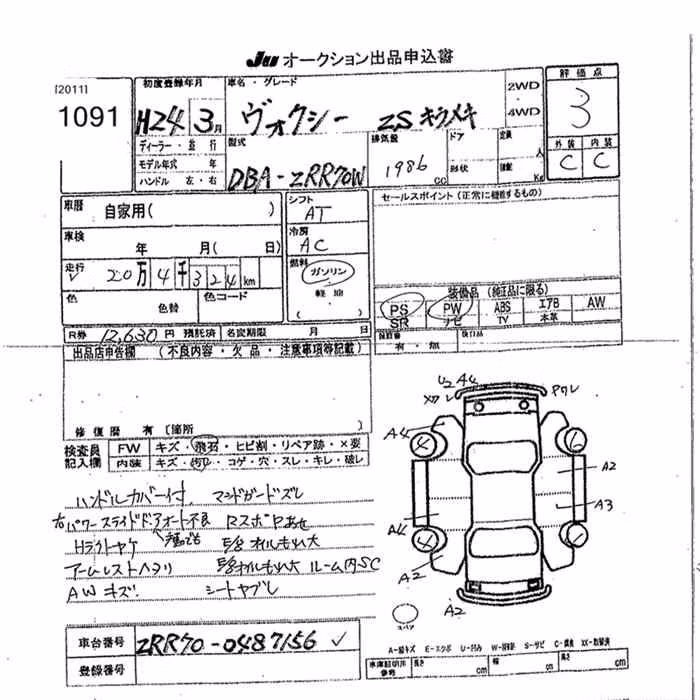 Ju オークション出品申込書
[2011]
1091
初度登録年月
H24 3月
ディーラー・並行
モデル年式 年
ハンドル 左・右
車名・グレード
ヴォクシー ZSキラメキ
2WD
・
4WD
型式
DBA-ZRR70W
排気量
1986
cc
ドア
形状
定員
人
積載
Kg
評価点
3
外装 内装
C C
車歴
自家用( )
車検
年 月( 日)
走行
20万4千324km
色
色替
色コード
シフト
AT
冷房
AC
燃料
ガソリン
軽油
( )
セールスポイント (正常に機能するもの)
装備品 (純正品に限る)
PS PW ABS エアB AW
SR ナビ TV 本革
保証書
有・無
後日品
R券 12,630 円 預託済 名変期限 月 日
出品店申告欄 (不良内容・欠品・注意事項等記載)
修復歴 有〔箇所 〕
検査員
記入欄
FW キズ・飛石・ヒビ割・リペア跡・×要
内装 キズ・汚れ・コゲ・穴・スレ・キレ・破レ
ハンドルカバー付 マッドガードズレ
右パワースライドドアオート不良 Rスポ
Hライトヤケ オイルもれ大
アームレストヘタリ オイルもれ大 ルーム内SC
AWキズ シートヤブレ
U2 A4
Xワレ
Pワレ
A4
4
6
A2
A3
A4
4
6
A2
A2
スペア
車台番号 ZRR70-0487156 ✓
登録番号
A-線キズ E-エクボ U-凹み W-補修跡 S-サビ C-腐食 XX-取替済
車庫証明用
参考
長さ cm
幅 cm
高さ cm